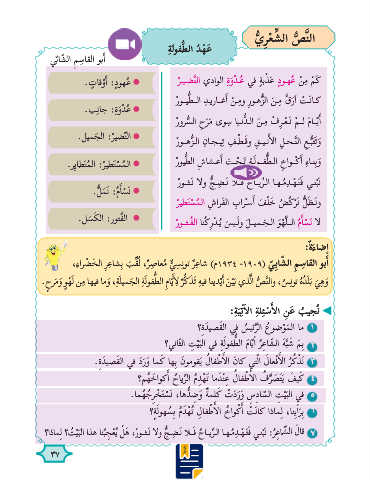 النَّصُّ الشِّعْرِيُّ
عَهْدُ الطُّفولَةِ
أبو القاسِمِ الشّابّي
كَمْ مِنْ عُهودٍ عَذْبَةٍ في عُدْوَةِ الوادي النَّضيرْ
كانَتْ أَرَقَّ مِنَ الزُّهورِ ومِنْ أَغاريدِ الطُّيورْ
أَيّامَ لَمْ نَعْرِفْ مِنَ الدُّنيا سِوى مَرَحِ السُّرورْ
وَتَتَبُّعِ النَّحْلِ الأَنيقِ وقَطْفِ تيجانِ الزُّهورْ
وَبِناءِ أَكْواخِ الطُّفولَةِ تَحْتَ أَعْشاشِ الطُّيورْ
نَبْني فَتَهْدِمُها الرِّياحُ فَلا نَضِجُّ ولا نَثورْ
ونَظَلُّ نَرْكُضُ خَلْفَ أَسْرابِ الفَراشِ المُسْتَطيرْ
لا نَسْأَمُ اللَّهْوَ الجَميلَ ولَيسَ يُدْرِكُنا الفُتورْ
عُهودٍ: أَوْقاتٍ.
عُدْوَة: جانِب.
النَّضير: الجَميل.
المُسْتَطير: المُتَطاير.
نَسْأَمُ: نَمَلُّ.
الفُتور: الكَسَل.
إضاءَةٌ:
أَبو القاسِمِ الشّابِيّ (١٩٠٩- ١٩٣٤م) شاعِرٌ تونِسِيٌّ مُعاصِرٌ، لُقِّبَ بِشاعِرِ الخَضْراءِ،
وَهِيَ بَلَدُهُ تونِسُ، والنَّصُّ الَّذي بَيْنَ أَيْدينا فيهِ تَذَكُّرٌ لِأَيّامِ الطُّفولَةِ الجَميلَةِ، وَما فيها مِن لَهْوٍ وَمَرَحٍ.
نُجيبُ عَنِ الأَسْئِلَةِ الآتِيَةِ:
١ ما المَوْضوعُ الرَّئيسُ في القَصيدَةِ؟
٢ بِمَ شَبَّهَ الشّاعِرُ أَيّامَ الطُّفولَةِ في البَيْتِ الثّاني؟
٣ نَذْكُرُ الأَفْعالَ الَّتي كانَ الأَطْفالُ يَقومونَ بِها كَما وَرَدَ في القَصيدَةِ.
٤ كَيفَ يَتَصَرَّفُ الأَطْفالُ عِنْدَما تَهْدِمُ الرِّياحُ أَكْواخَهُمْ؟
٥ في البَيْتِ السّادِسِ وَرَدَتْ كَلِمَةٌ وَضِدُّها، نَسْتَخْرِجُهُما.
٦ بِرَأْيِنا، لِماذا كانَتْ أَكْواخُ الأَطْفالِ تُهْدَمُ بِسُهولَةٍ؟
٧ قالَ الشّاعِرُ: نَبْني فَتَهْدِمُها الرِّياحُ فَلا نَضِجُّ ولا نَثورْ، هَلْ يُعْجِبُنا هذا البَيْتُ؟ لِماذا؟
٣٧